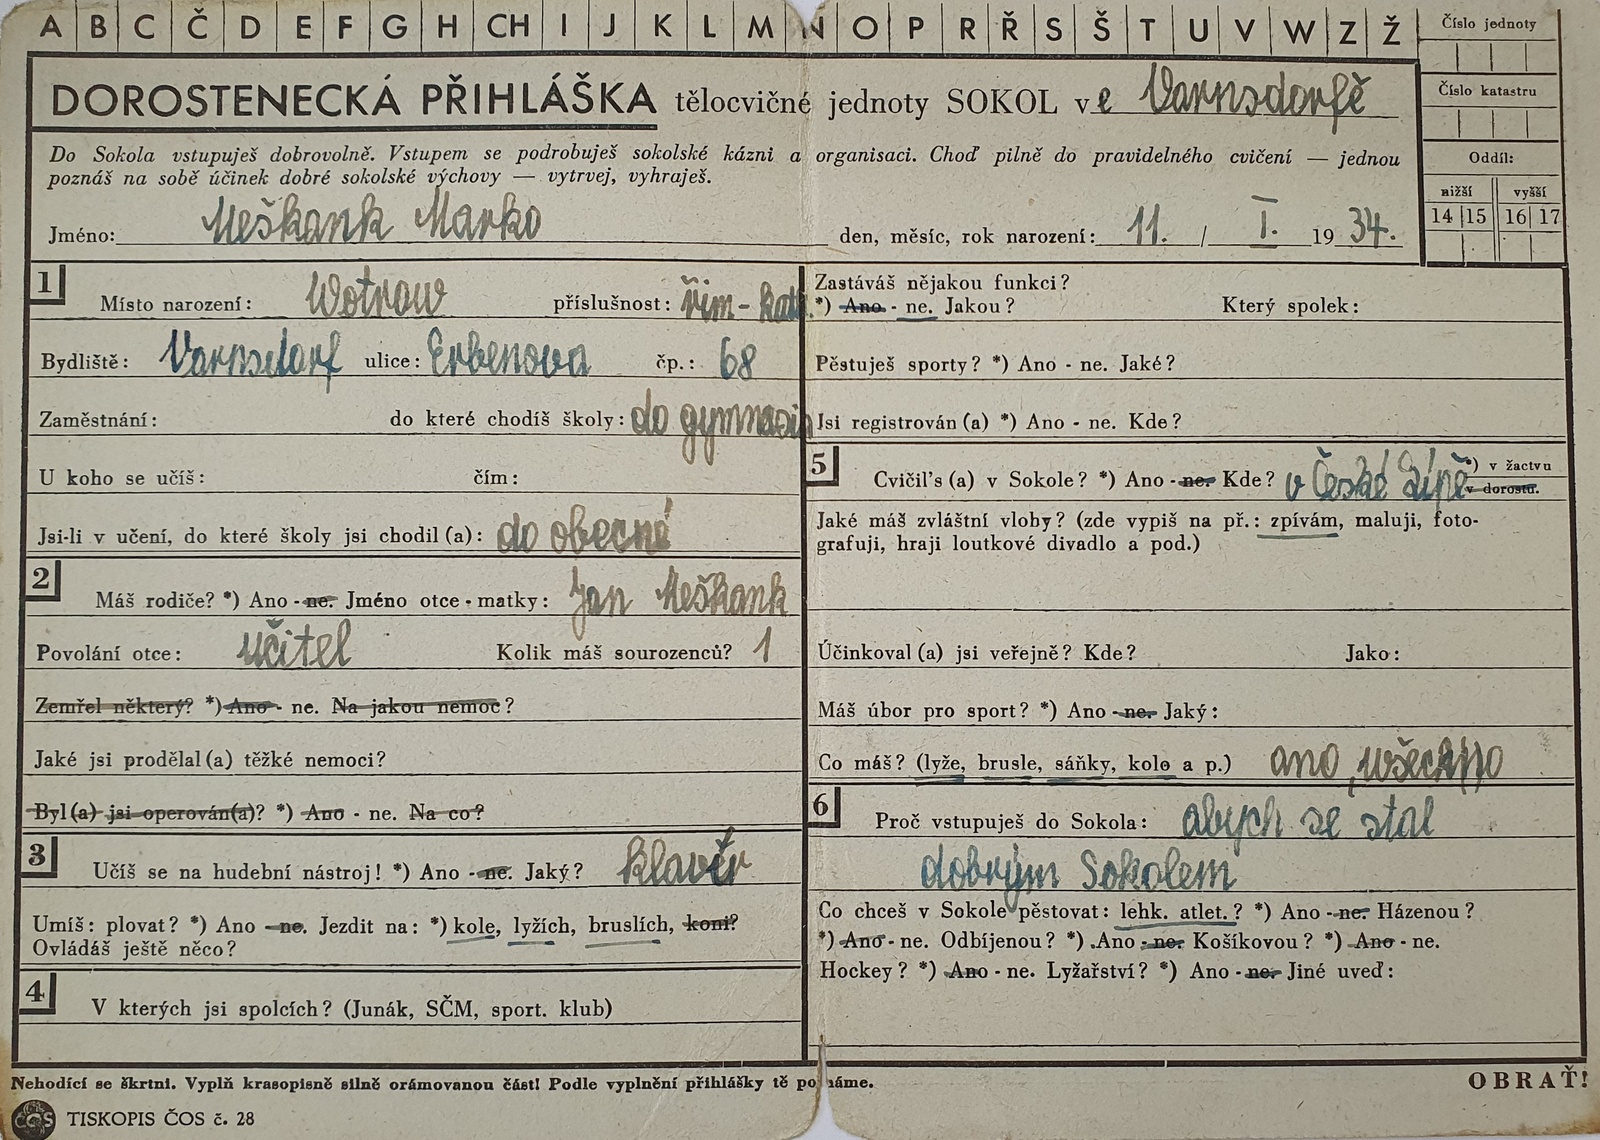 A B C Č D E F G H CH I J K L M N O P R Ř S Š T U V W Z Ž
Číslo jednoty
DOROSTENECKÁ PŘIHLÁŠKA tělocvičné jednoty SOKOL ve Varnsdorfě
Číslo katastru
Do Sokola vstupuješ dobrovolně. Vstupem se podrobuješ sokolské kázni a organisaci. Choď pilně do pravidelného cvičení — jednou
poznáš na sobě účinek dobré sokolské výchovy — vytrvej, vyhraješ.
Oddíl:
nižší vyšší
14 15 16 17
Jméno: Meškank Marko den, měsíc, rok narození: 11. / I. 1934.
1
Místo narození: Wotrow příslušnost: řím-kath.
Bydliště: Varnsdorf ulice: Erbenova čp.: 68
Zaměstnání: do které chodíš školy: do gymnasia
U koho se učíš: čím:
Jsi-li v učení, do které školy jsi chodil(a): do obecné
2
Máš rodiče? *) Ano - ne. Jméno otce - matky: Jan Meškank
Povolání otce: učitel Kolik máš sourozenců? 1
Zemřel některý? *) Ano - ne. Na jakou nemoc?
Jaké jsi prodělal(a) těžké nemoci?
Byl(a) jsi operován(a)? *) Ano - ne. Na co?
3
Učíš se na hudební nástroj! *) Ano - ne. Jaký? klavír
Umíš: plovat? *) Ano - ne. Jezdit na: *) kole, lyžích, bruslích, koni?
Ovládáš ještě něco?
4
V kterých jsi spolcích? (Junák, SČM, sport. klub)
Zastáváš nějakou funkci?
*) Ano - ne. Jakou? Který spolek:
Pěstuješ sporty? *) Ano - ne. Jaké?
Jsi registrován(a) *) Ano - ne. Kde?
5
Cvičil's(a) v Sokole? *) Ano - ne. Kde? v České Lípě *) v žactvu
v dorostu.
Jaké máš zvláštní vlohy? (zde vypiš na př.: zpívám, maluji, foto-
grafuji, hraji loutkové divadlo a pod.)
Účinkoval(a) jsi veřejně? Kde? Jako:
Máš úbor pro sport? *) Ano - ne. Jaký:
Co máš? (lyže, brusle, sáňky, kolo a p.) ano, všechno
6
Proč vstupuješ do Sokola: abych se stal
dobrým Sokolem
Co chceš v Sokole pěstovat: lehk. atlet.? *) Ano - ne. Házenou?
*) Ano - ne. Odbíjenou? *) Ano - ne. Košíkovou? *) Ano - ne.
Hockey? *) Ano - ne. Lyžařství? *) Ano - ne. Jiné uveď:
Nehodící se škrtni. Vyplň krasopisně silně orámovanou část! Podle vyplnění přihlášky tě poznáme.
OBRAŤ!
ČOS TISKOPIS ČOS č. 28